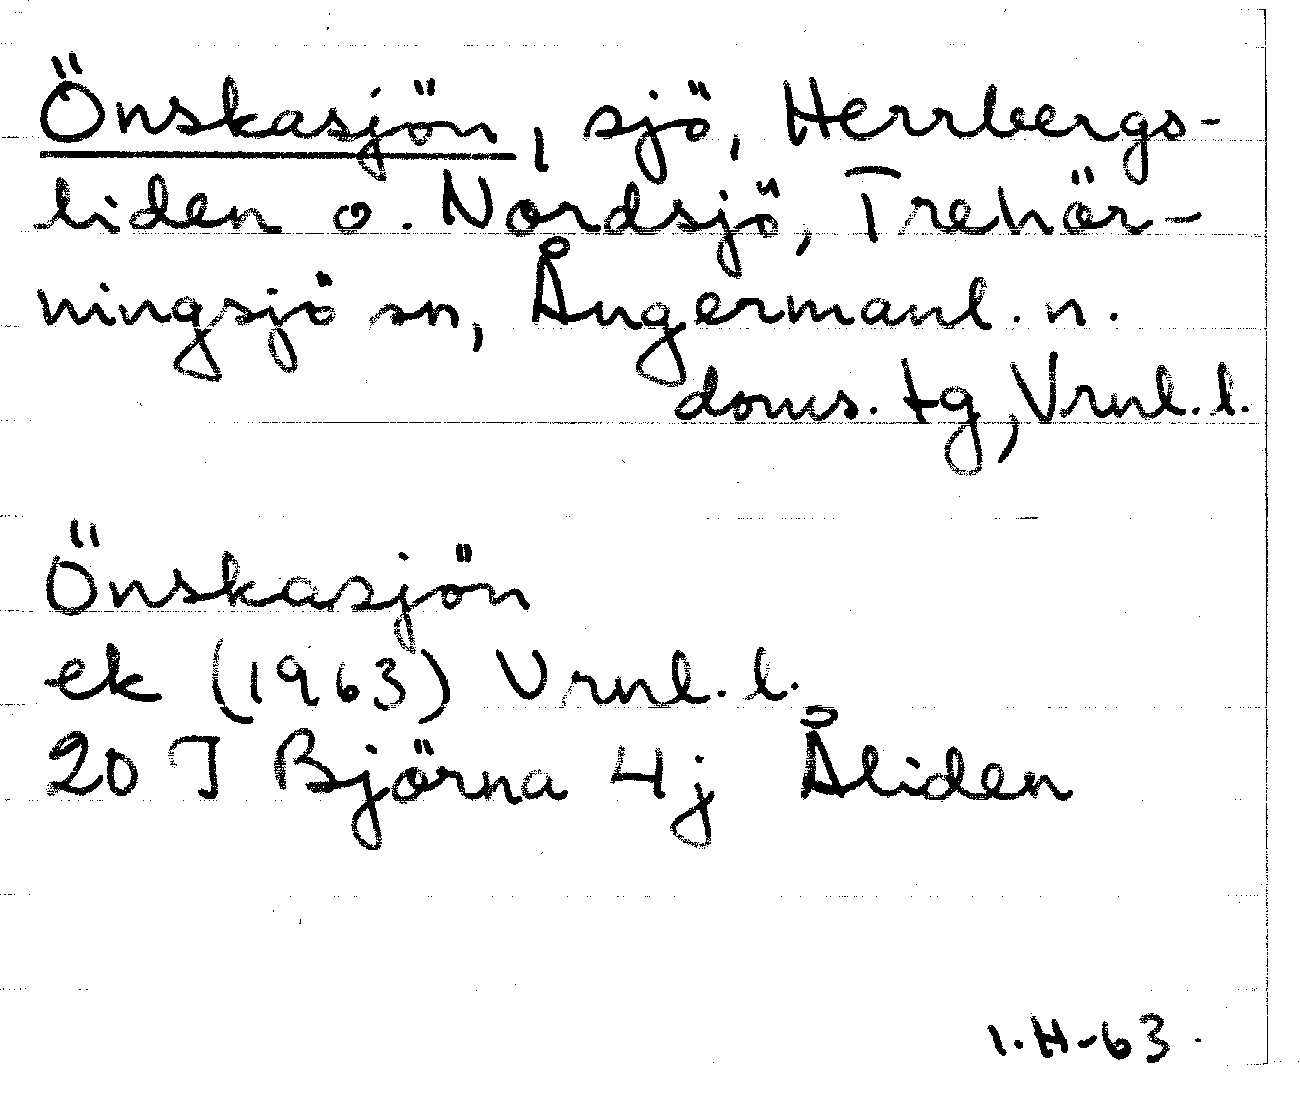 Önskasjön, sjö, Herrbergs-
liden o. Nordsjö, Trehör-
ningsjö sn, Ångermanl. n.
doms. tg, Vrnl. l.
Önskasjön
ek (1963) Vrnl. l.
20 J Björna 4j Åliden
I.H-63.